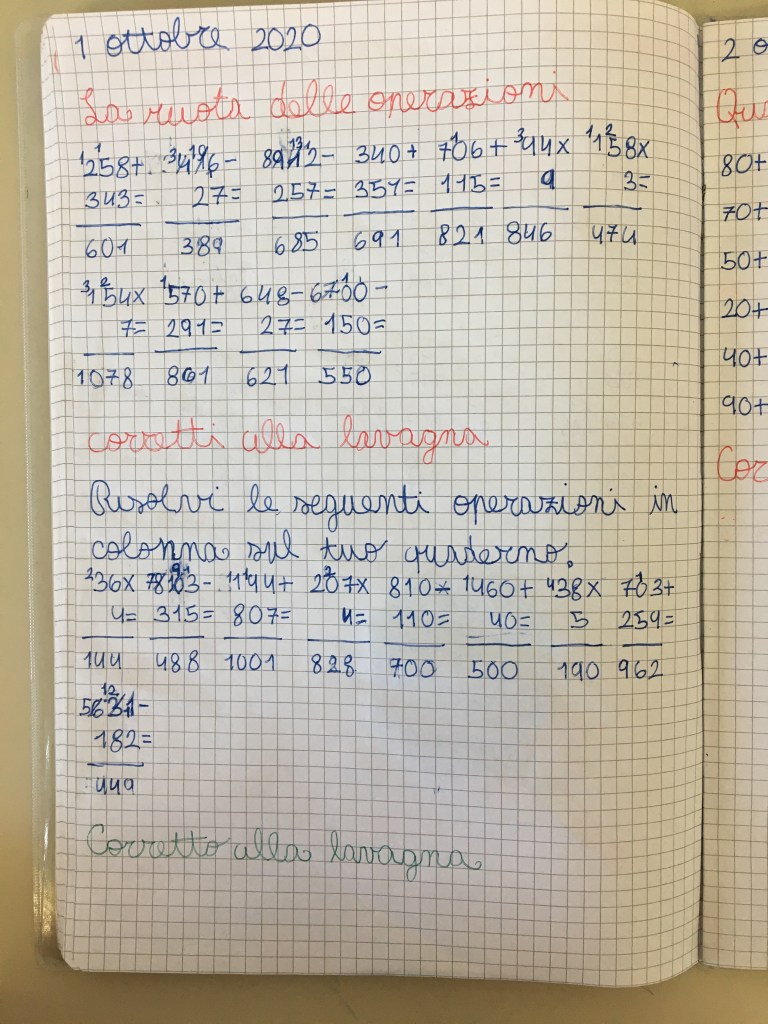 1 ottobre 2020
La ruota delle operazioni
258+ 416- 942- 340+ 706+ 94x 158x
343= 27= 257= 351= 115= 9 3=
601 389 685 691 821 846 474
154x 570+ 648- 700-
7= 291= 27= 150=
1078 861 621 550
corretti alla lavagna
Risolvi le seguenti operazioni in
colonna sul tuo quaderno.
36x 803- 194+ 207x 810- 460+ 38x 703+
4= 315= 807= 4= 110= 40= 5 259=
144 488 1001 828 700 500 190 962
631-
182=
449
Corretto alla lavagna
2 o
Qu
80+
70+
50+
20+
40+
90+
Cor